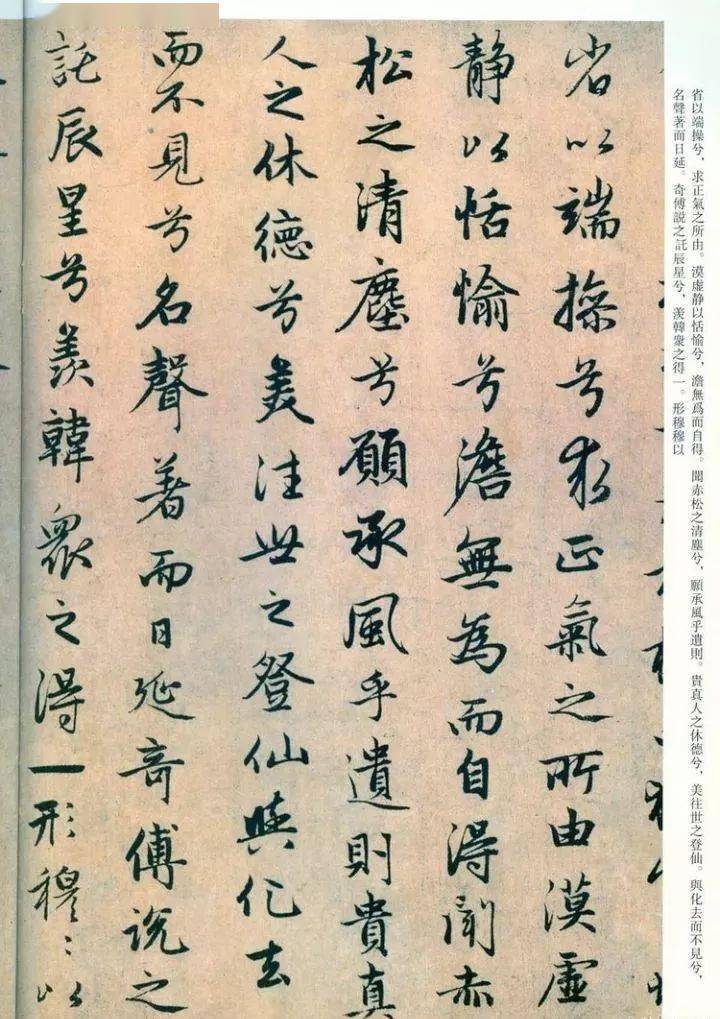 省以端操兮，求正氣之所由。漠虛静以恬愉兮，澹無爲而自得。聞赤松之清塵兮，願承風乎遺則。貴真人之休德兮，美往世之登仙。與化去而不見兮，
名聲著而日延。奇傅説之託辰星兮，羨韓衆之得一。形穆穆以
省以端操兮求正氣之所由漠虛
静以恬愉兮澹無為而自得聞赤
松之清塵兮願承風乎遺則貴真
人之休德兮美往世之登仙與化去
而不見兮名聲著而日延奇傅說之
託辰星兮羨韓衆之得一形穆〻以